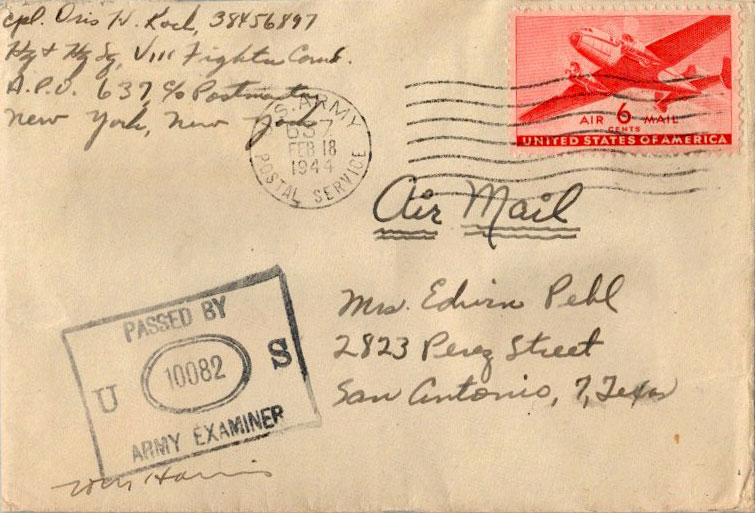 Cpl. Oris H. Koch, 38456897
Hq & Hq Sq, VIII Fighter Com'd.
A.P.O. 637, c/o Postmaster
New York, New York
U.S. ARMY
637
FEB 18
1944
POSTAL SERVICE
AIR 6 MAIL
CENTS
UNITED STATES OF AMERICA
Air Mail
Mrs. Edwin Pehl
2823 Perez Street
San Antonio, 7, Texas
PASSED BY
U 10082 S
ARMY EXAMINER
Harris